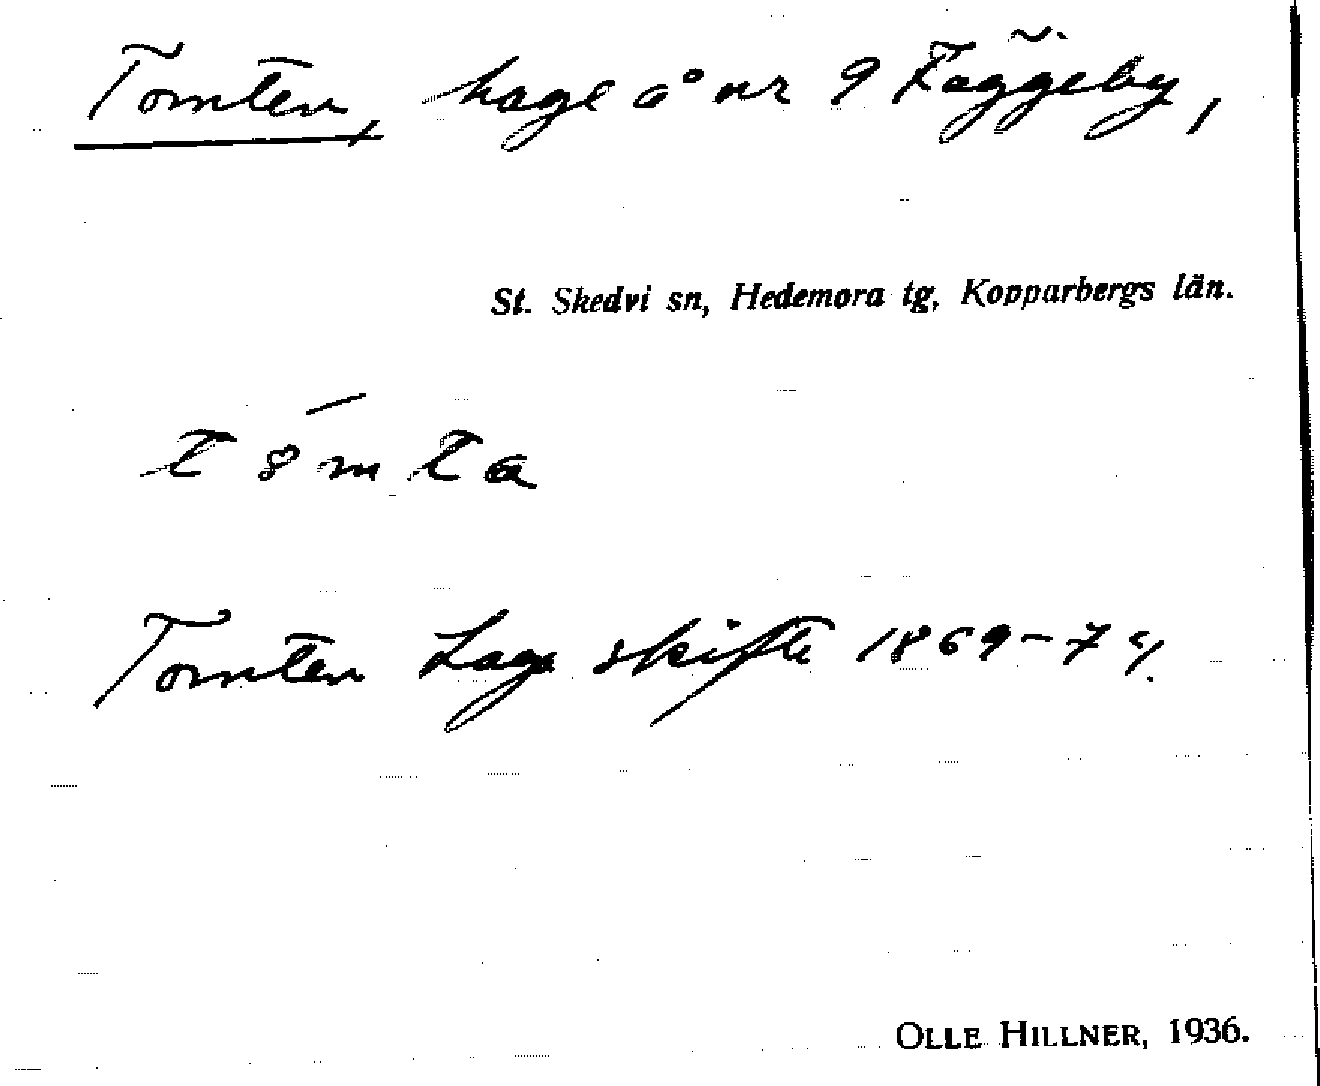 Tomten, hage å nr 9 Fäggeby,
St. Skedvi sn, Hedemora tg, Kopparbergs län.
Tomten Laga skifte 1869-74.
OLLE HILLNER, 1936.